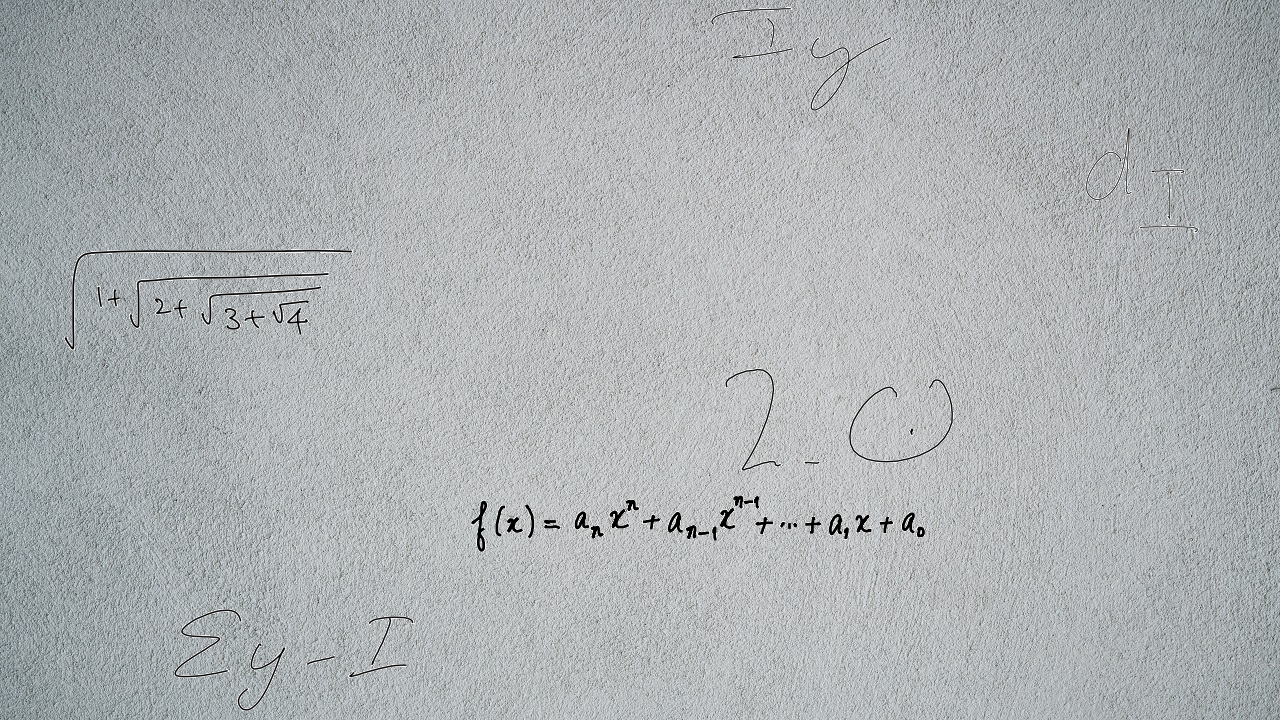 I y
d I
\sqrt{1+\sqrt{2+\sqrt{3+\sqrt{4}}}}
2 - 0
f(x) = a_n x^n + a_{n-1} x^{n-1} + \cdots + a_1 x + a_0
\Sigma y - I